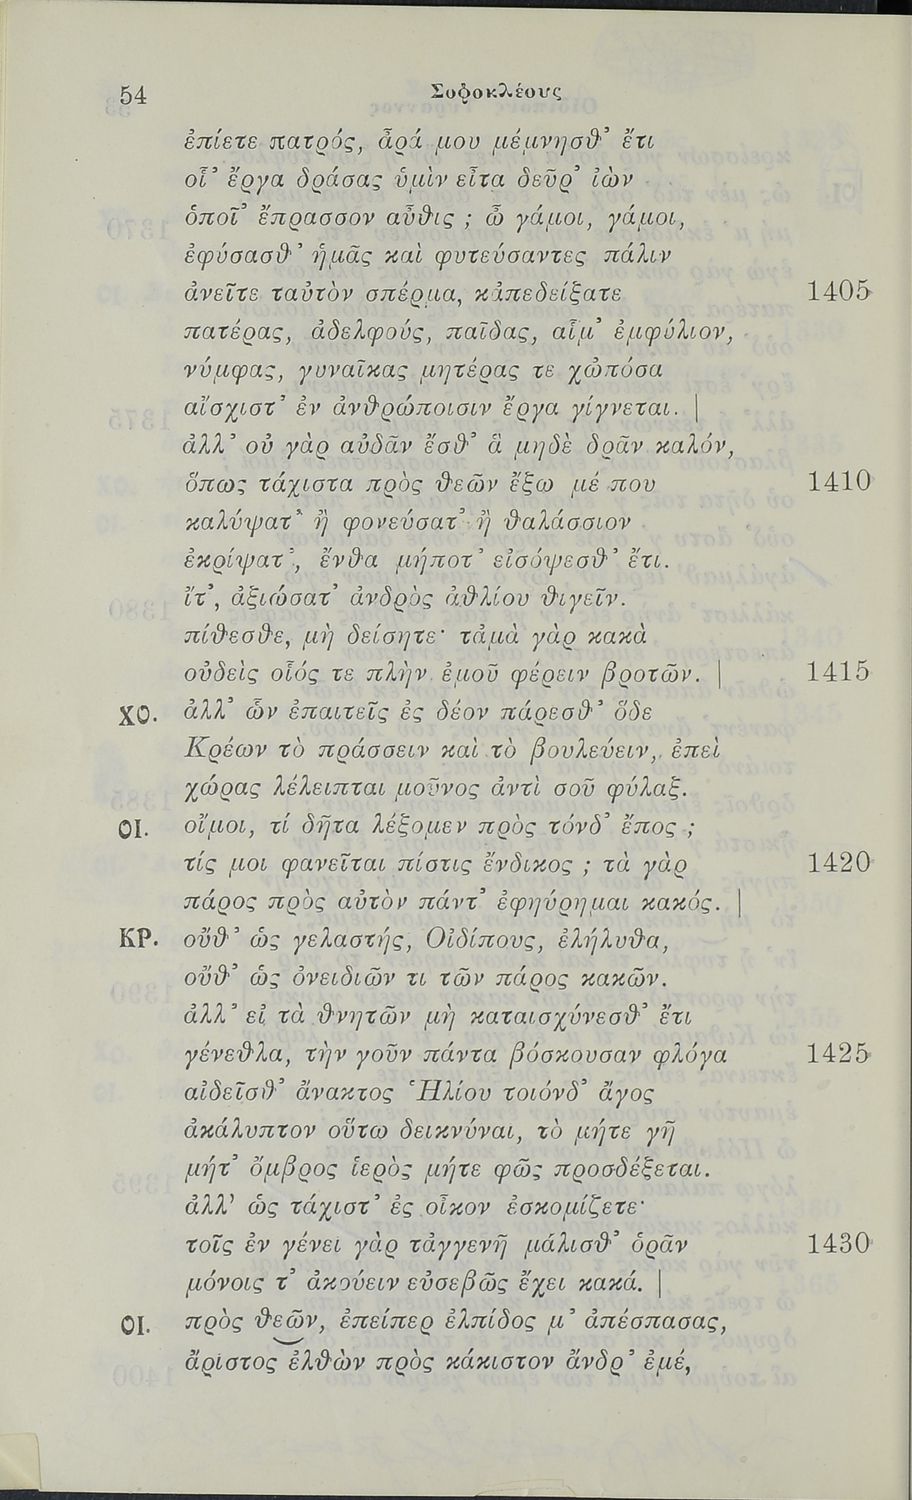 54 Σοφοκλέους
ἐπίετε πατρός, ἆρά μου μέμνησθ’ ἔτι
οἷ’ ἔργα δράσας ὑμὶν εἶτα δεῦρ’ ἰὼν
ὁποῖ’ ἔπρασσον αὖθις ; ὦ γάμοι, γάμοι,
ἐφύσασθ’ ἡμᾶς καὶ φυτεύσαντες πάλιν
ἀνεῖτε ταὐτὸν σπέρμα, κἀπεδείξατε 1405
πατέρας, ἀδελφούς, παῖδας, αἷμ’ ἐμφύλιον,
νύμφας, γυναῖκας μητέρας τε χὠπόσα
αἴσχιστ’ ἐν ἀνθρώποισιν ἔργα γίγνεται. |
ἀλλ’ οὐ γὰρ αὐδᾶν ἔσθ’ ἃ μηδὲ δρᾶν καλόν,
ὅπως τάχιστα πρὸς θεῶν ἔξω μέ που 1410
καλύψατ’ ἢ φονεύσατ’ ἢ θαλάσσιον
ἐκρίψατ’, ἔνθα μήποτ’ εἰσόψεσθ’ ἔτι.
ἴτ’, ἀξιώσατ’ ἀνδρὸς ἀθλίου θιγεῖν.
πίθεσθε, μὴ δείσητε· τἀμὰ γὰρ κακὰ
οὐδεὶς οἷός τε πλὴν ἐμοῦ φέρειν βροτῶν. | 1415
ΧΟ. ἀλλ’ ὧν ἐπαιτεῖς ἐς δέον πάρεσθ’ ὅδε
Κρέων τὸ πράσσειν καὶ τὸ βουλεύειν, ἐπεὶ
χώρας λέλειπται μοῦνος ἀντὶ σοῦ φύλαξ.
ΟΙ. οἴμοι, τί δῆτα λέξομεν πρὸς τόνδ’ ἔπος ;
τίς μοι φανεῖται πίστις ἔνδικος ; τὰ γὰρ 1420
πάρος πρὸς αὐτὸν πάντ’ ἐφηύρημαι κακός. |
ΚΡ. οὔθ’ ὡς γελαστής, Οἰδίπους, ἐλήλυθα,
οὔθ’ ὡς ὀνειδιῶν τι τῶν πάρος κακῶν.
ἀλλ’ εἰ τὰ θνητῶν μὴ καταισχύνεσθ’ ἔτι
γένεθλα, τὴν γοῦν πάντα βόσκουσαν φλόγα 1425
αἰδεῖσθ’ ἄνακτος Ἡλίου τοιόνδ’ ἄγος
ἀκάλυπτον οὕτω δεικνύναι, τὸ μήτε γῆ
μήτ’ ὄμβρος ἱερὸς μήτε φῶς προσδέξεται.
ἀλλ’ ὡς τάχιστ’ ἐς οἶκον ἐσκομίζετε·
τοῖς ἐν γένει γὰρ τἀγγενῆ μάλισθ’ ὁρᾶν 1430
μόνοις τ’ ἀκούειν εὐσεβῶς ἔχει κακά. |
ΟΙ. πρὸς θεῶν, ἐπείπερ ἐλπίδος μ’ ἀπέσπασας,
ἄριστος ἐλθὼν πρὸς κάκιστον ἄνδρ’ ἐμέ,